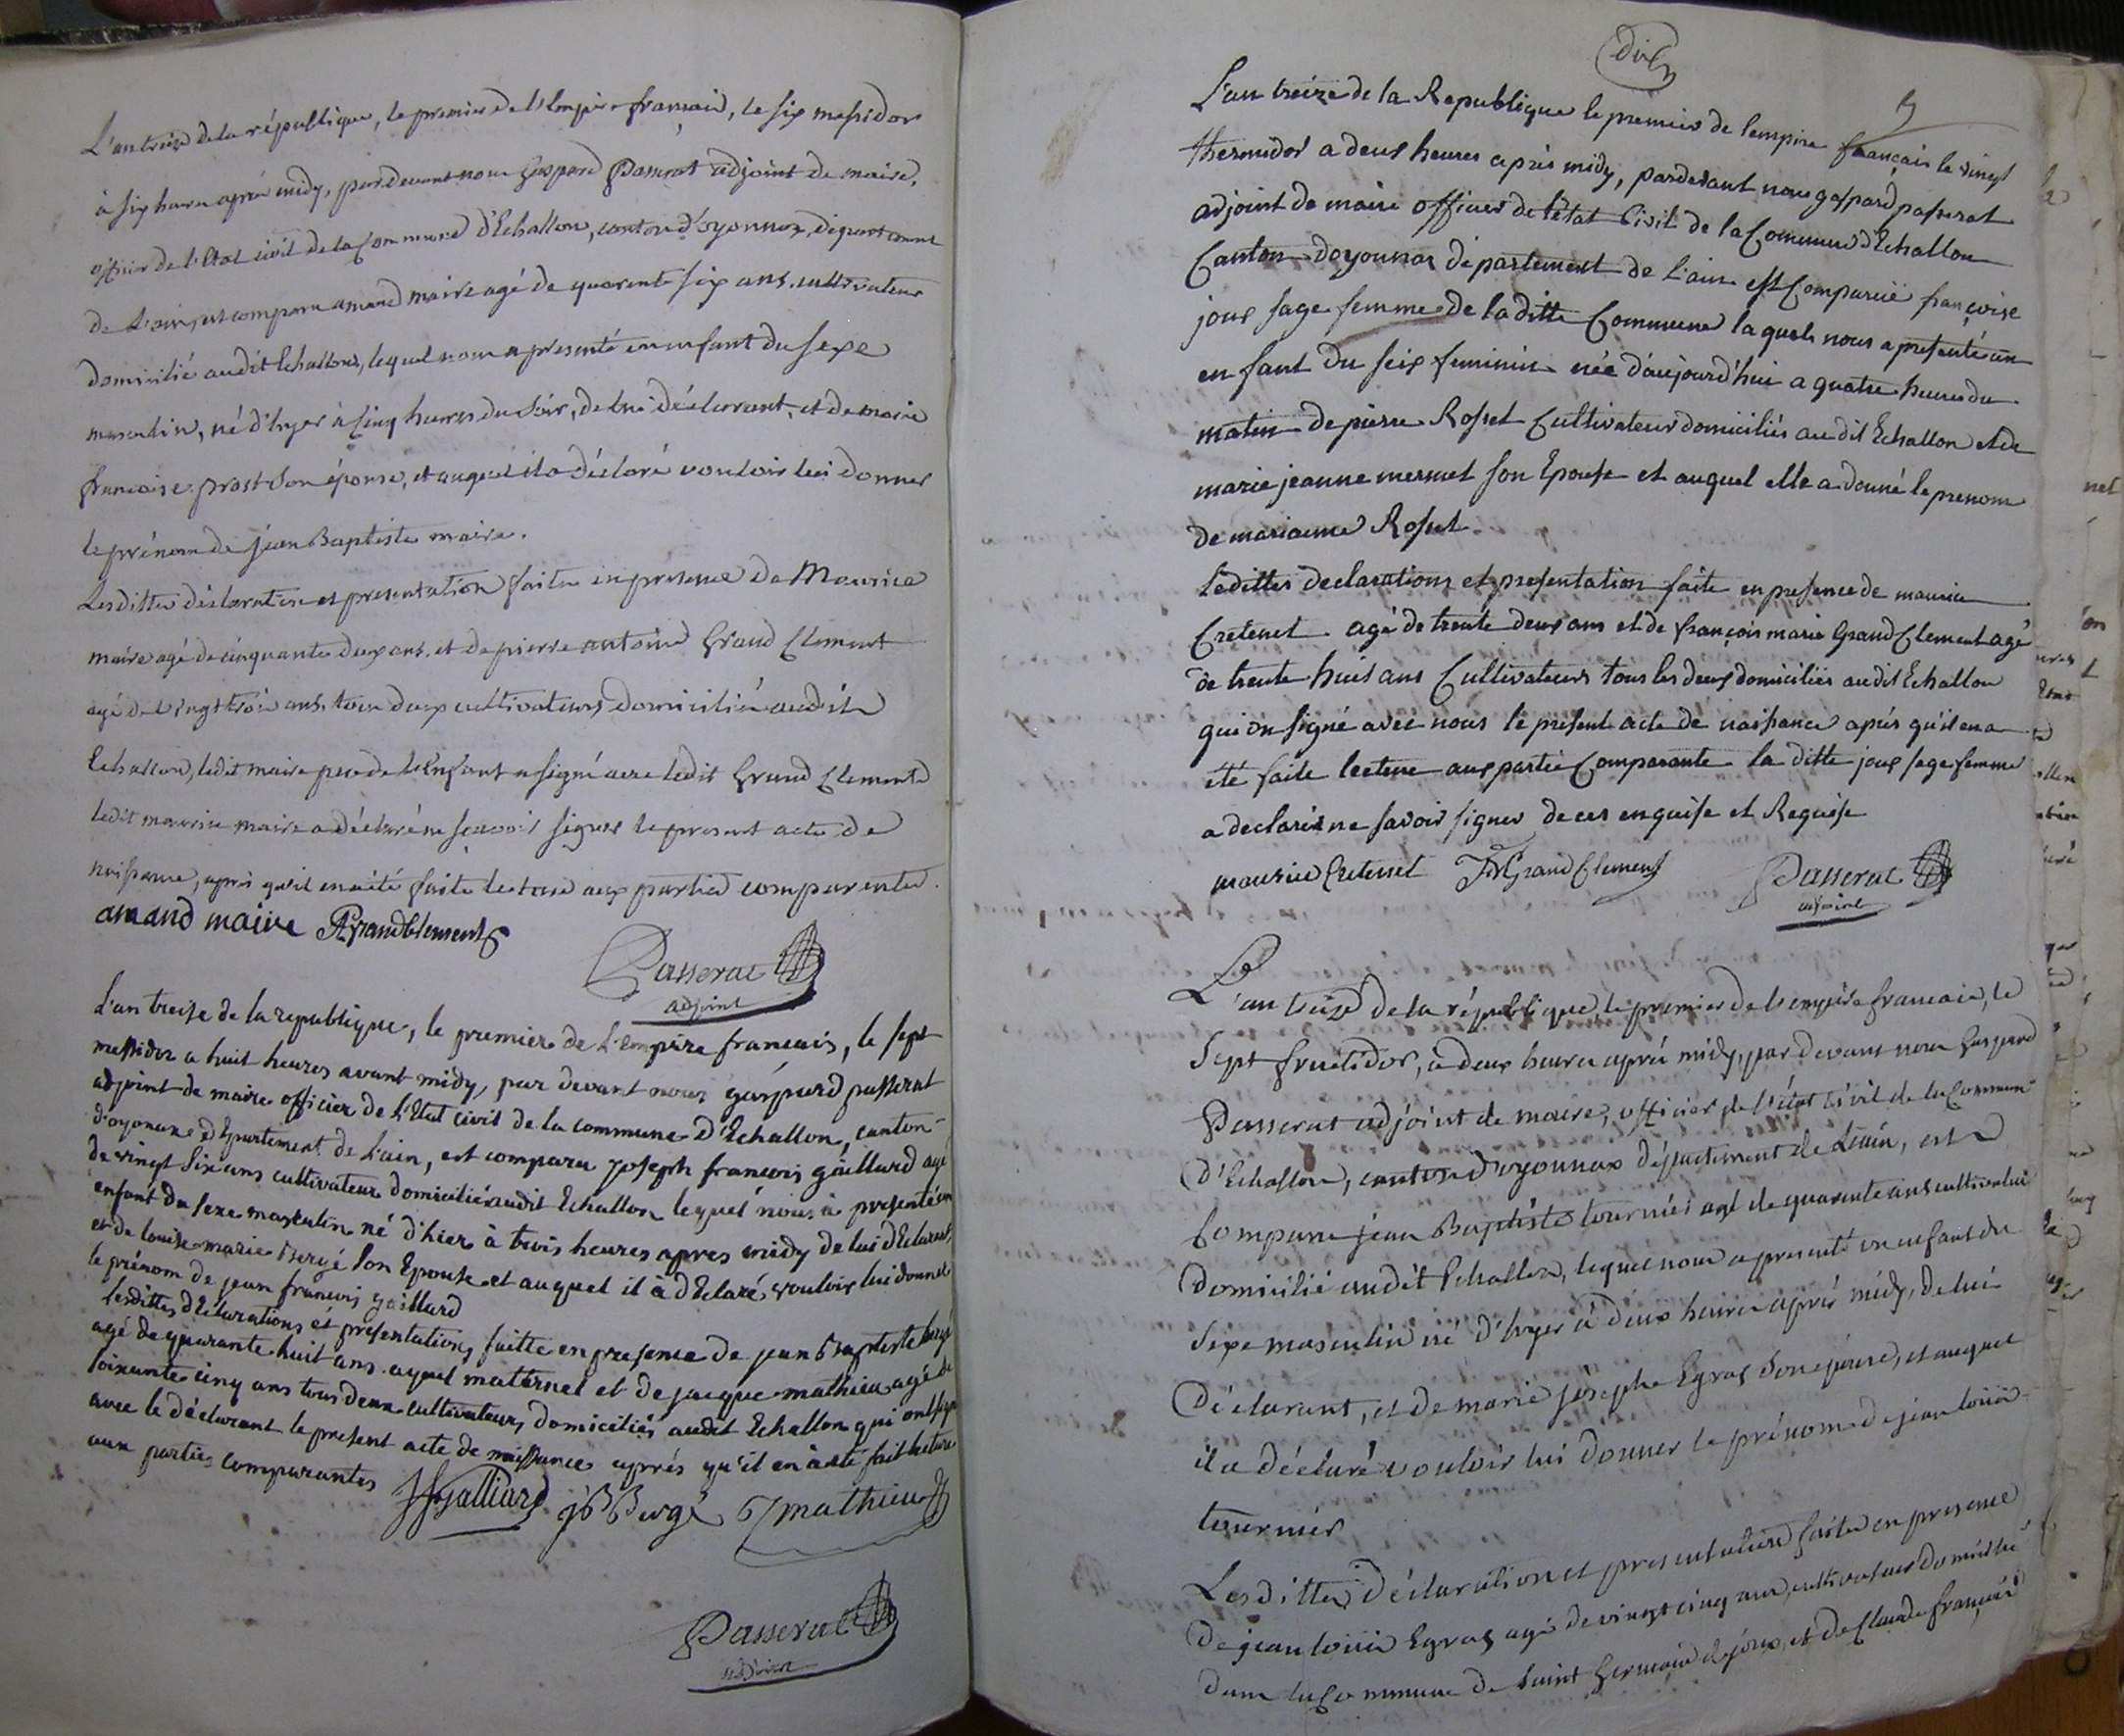 L'an treize de la république, le premier de l'Empire francaid, le six messidor
à six heures après midy, pardevant nous Gaspard Passerat adjoint de maire,
officier de l'Etat civil de la Commune d'Echallon, canton d'oyonnax, département
de L'ain, est comparu amand maire agé de quarente six ans, cultivateur
domicilié audit Echallon, lequel nous a presenté un enfant du sexe
masculin, né d'hyer à cinq heures du soir, de lui déclarant, et de marie
francoise prost son épouse, et auquel il a déclaré vouloir lui donner
le prénom de jean Baptiste maire.
Lesdittes déclaration et presentation faites en présence de Maurice
maire agé de cinquante deux ans, et de pierre antoine Grand Clement
agé de vingt trois ans, tous deux cultivateurs domiciliés audit
Echallon, ledit maire pere de l'Enfant a signé avec ledit Grand Clement
ledit maurice maire a déclaré ne scavoir signer le present acte de
naissance, après qu'il en a été faite lecture aux parties comparentes.
amand maire PAGrandClement
Passerat
adjoint
L'an treise de la republique, le premier de L'empire francais, le sept
messidor a huit heures avant midy, par devant nous gaspard passerat
adjoint de maire officier de L'Etat civil de la commune d'Echallon, canton
d'oyonax département de L'ain, est comparu joseph francois gaillard agé
de vingt six ans cultivateur domicilié audit Echallon lequel nous à presenté un
enfant du sexe masculin né d'hier à trois heures apres midy de lui déclarant,
et de louise marie Bergé son Epouse et auquel il à déclaré vouloir lui donner
le prénom de jean francois gaillard
lesdittes déclarations et presentations faitte en presence de jean Baptiste bergé
agé de quarante huit ans ayeul maternel et de jacque mathieu agé de
soixante cinq ans tous deux cultivateurs domiciliés audit Echallon qui ont signé
avec le déclarant le present acte de naissance aprés qu'il en à été fait lecture
aux parties comparantes
JFgalliard jB Bergé J mathieu
Passerat
adjoint
dix
9
L'an treize de la Republique le premier de lempire français le vingt
thermidor a deux heures après midy, pardevant nous gaspard passerat
adjoint de maire officier de l'état Civil de la Commune d'Echallon
Canton doyonnax département de l'ain est Comparuë françoise
joux sage femme de la ditte Commune laquele nous a presenté un
enfant du seix feminin née d'aujourd'hui a quatre heures du
matin de pierre Rosset Cultivateur domiciliés au dit Echallon et de
marie jeanne mermet son Epouse et auquel elle a donné le prenom
de marianne Rosset
Leditter declarations et presentation faite en presence de maurice
Cretenet agé de trente deux ans et de françois marie Grand Clement agé
de trente huit ans Cultivateurs tous les deux domiciliés au dit Echallon
qui on signé avec nous le present acte de naissance aprés qu'il en a
été faite lecture aux partie Comparante la ditte joux sage femme
a declarée ne savoir signer de ces enquise et Requise
maurice Cretenet FMGrandClement Passerat
adjoint
L'an treize de la république le premier de l'empire francaid, le
Sept fructidor, à deux heures après midy, par devant nous Gaspard
Passerat adjoint de maire, officier de l'état civil de la Commune
d'Echallon, canton d'oyonnax département de L'ain, est
Comparu jean Baptiste tournier agé de quarente ans cultivateur
domicilié audit Echallon, lequel nous a presenté un enfant du
Sexe masculin né d'hyer à deux heures après midy, de lui
déclarant, et de marie josephe Egraz son épouse, et auquel
il a déclaré vouloir lui donner le prénom de jean louis
tournier
Lesdittes déclaration et presentation faites en presence
de jean louis Egraz agé de vingt cinq ans, cultivateur domicilié
dans la Commune de Saint Germain de joux, et de Claude françois